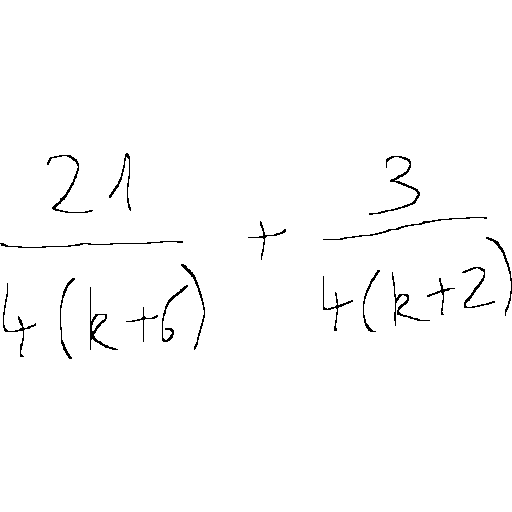 \frac{21}{4(k+6)} + \frac{3}{4(k+2)}